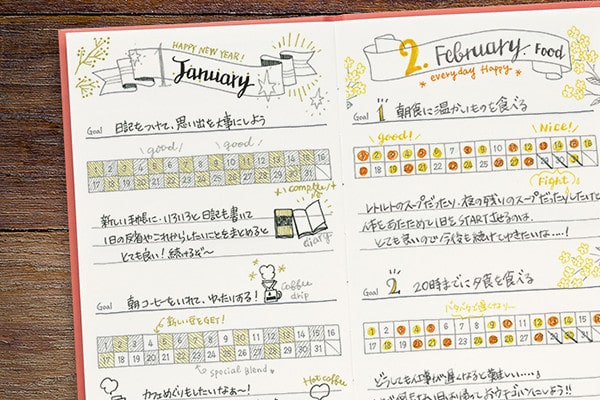 HAPPY NEW YEAR!
January
Goal 日記をつけて、思い出を大事にしよう
good! good!
1 2 3 4 5 6 7 8 9 10 11 12 13 14 15 16
17 18 19 20 21 22 23 24 25 26 27 28 29 30 31
complete
新しい手帳に、いろいろと日記も書いて
1日の反省やこれからしたいことをまとめると
とても良い!続けるぞ〜
diary
Coffee drip
Goal 朝コーヒーをいれて、ゆったりする!
新しい豆をGET!
1 2 3 4 5 6 7 8 9 10 11 12 13 14 15 16
17 18 19 20 21 22 23 24 25 26 27 28 29 30 31
special Blend
Hot coffee
カフェめぐりもしたいなぁ〜!
2. February Food
everyday Happy
Goal 1 朝食に温かいものを食べる
good! Nice!
1 2 3 4 5 6 7 8 9 10 11 12 13 14 15 16
17 18 19 20 21 22 23 24 25 26 27 28 29 30 31
Fight
レトルトのスープだったり、夜の残りのスープだったりしたけど
体をあたためて1日をSTARTさせるのは、
とても良いので今後も続けて行きたいな…!
Goal 2 20時までに夕食を食べる
1 2 3 4 5 6 7 8 9 10 11 12 13 14 15 16
17 18 19 20 21 22 23 24 25 26 27 28 29 30 31
どうしても仕事が